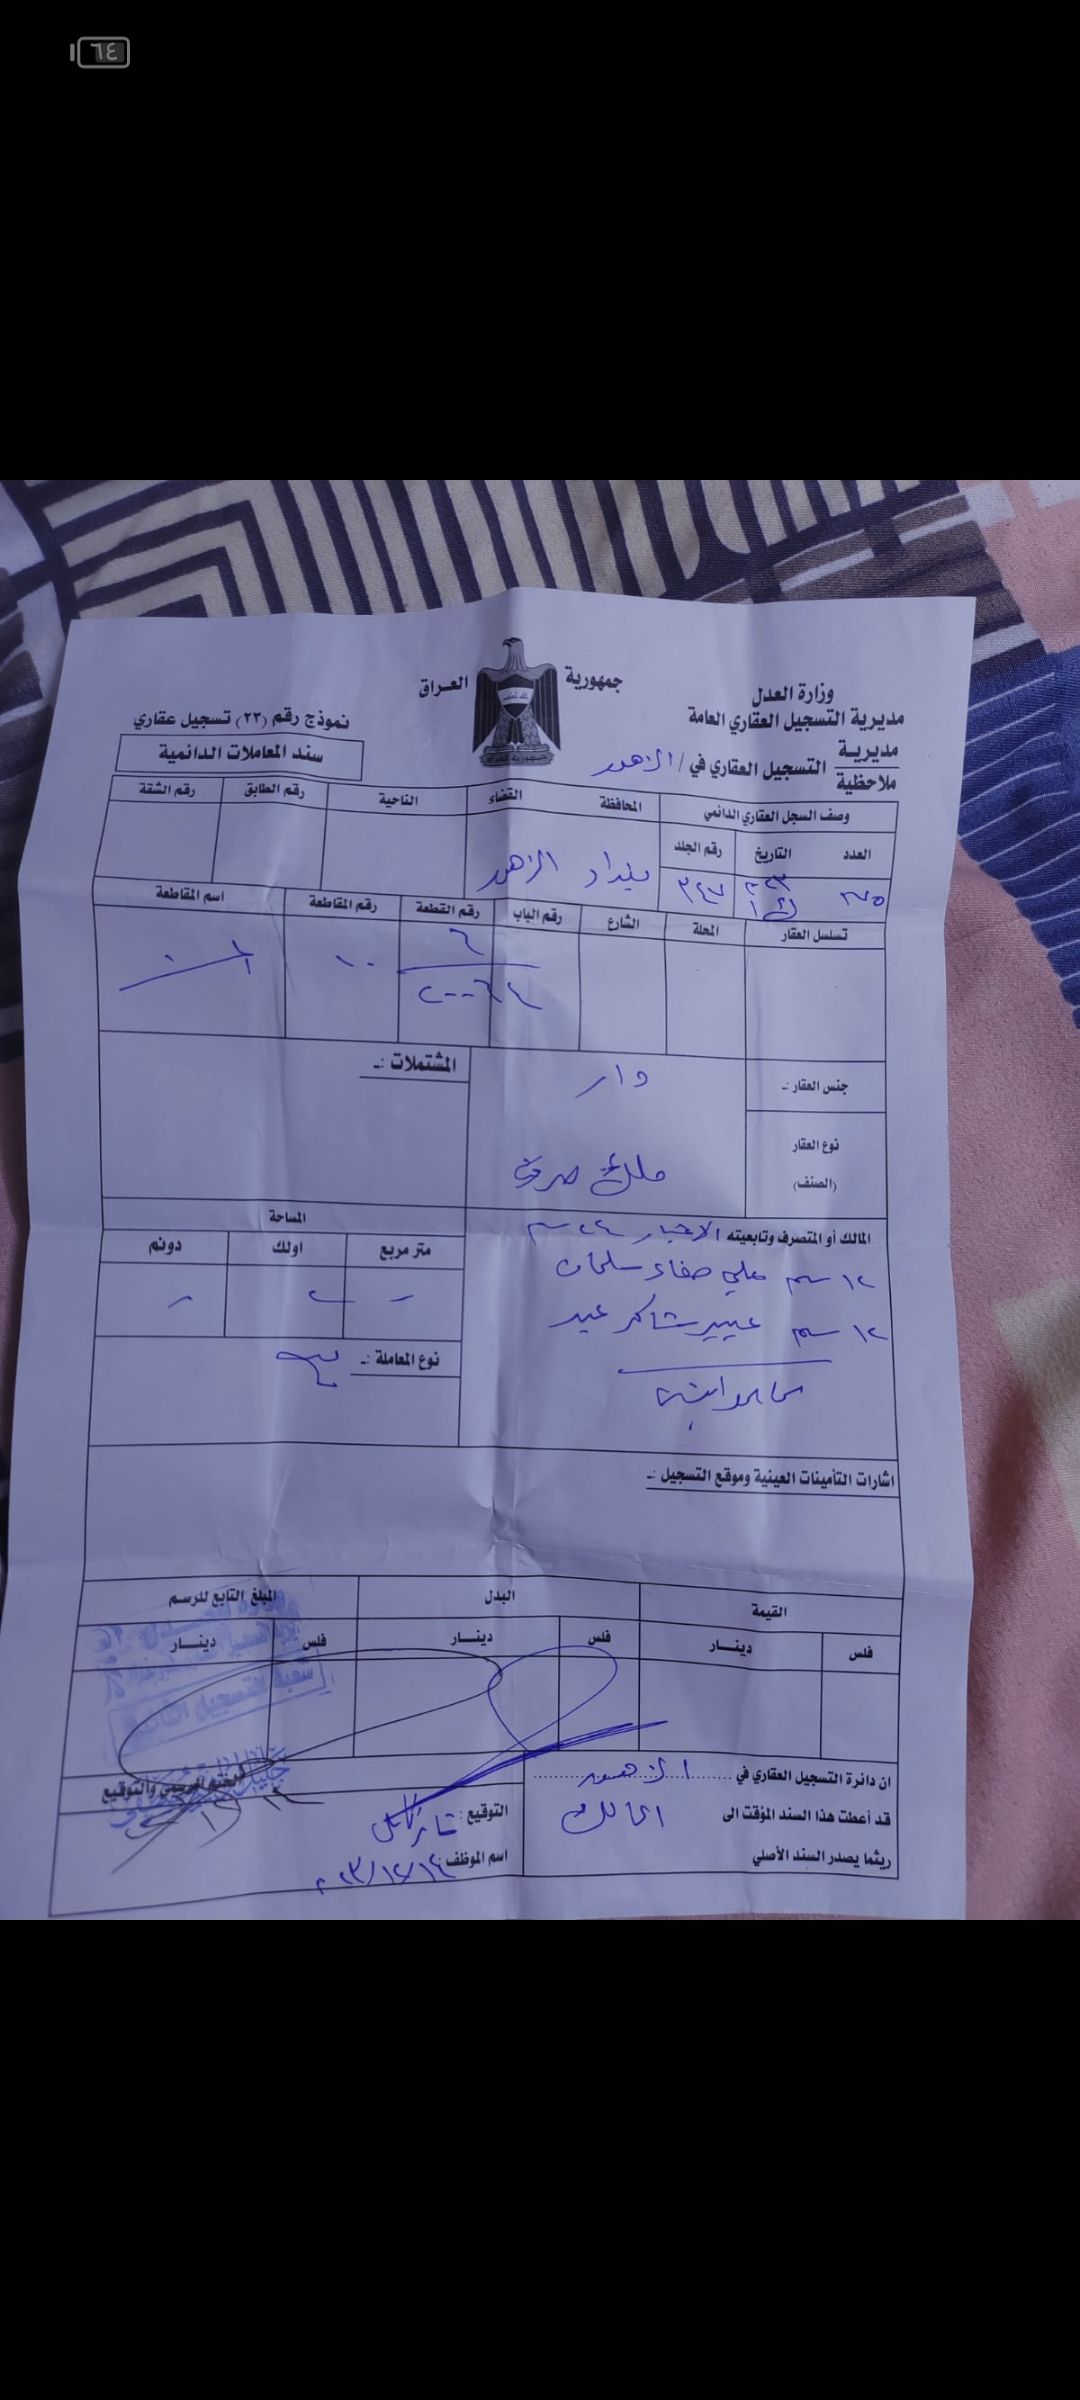 ٦٤
جمهورية العراق
وزارة العدل
مديرية التسجيل العقاري العامة
مديرية
ملاحظية
التسجيل العقاري في / الزهور
نموذج رقم (٢٣) تسجيل عقاري
سند المعاملات الدائمية
وصف السجل العقاري الدائمي
المحافظة القضاء الناحية رقم الطابق رقم الشقة
العدد التاريخ رقم الجلد
٣٤٧
بغداد الزهور
تسلسل العقار المحلة الشارع رقم الباب رقم القطعة رقم المقاطعة اسم المقاطعة
٦
٢٠٠٦٤
١٠
جنس العقار :-
دار
المشتملات :-
نوع العقار
(الصنف)
ملك صرف
المالك أو المتصرف وتابعيته
١٢ سهم علي صفاء سلمان
١٢ سهم عبير شاكر عبد
المساحة
متر مربع اولك دونم
- ٢ -
نوع المعاملة :-
اشارات التأمينات العينية وموقع التسجيل :-
القيمة البدل المبلغ التابع للرسم
فلس دينـــار فلس دينـــار فلس دينـــار
ان دائرة التسجيل العقاري في الزهور
قد أعطت هذا السند المؤقت الى المالك
ريثما يصدر السند الأصلي
التوقيع :
اسم الموظف
٢٠٢٣/١٢/١٤
الختم الرسمي والتوقيع